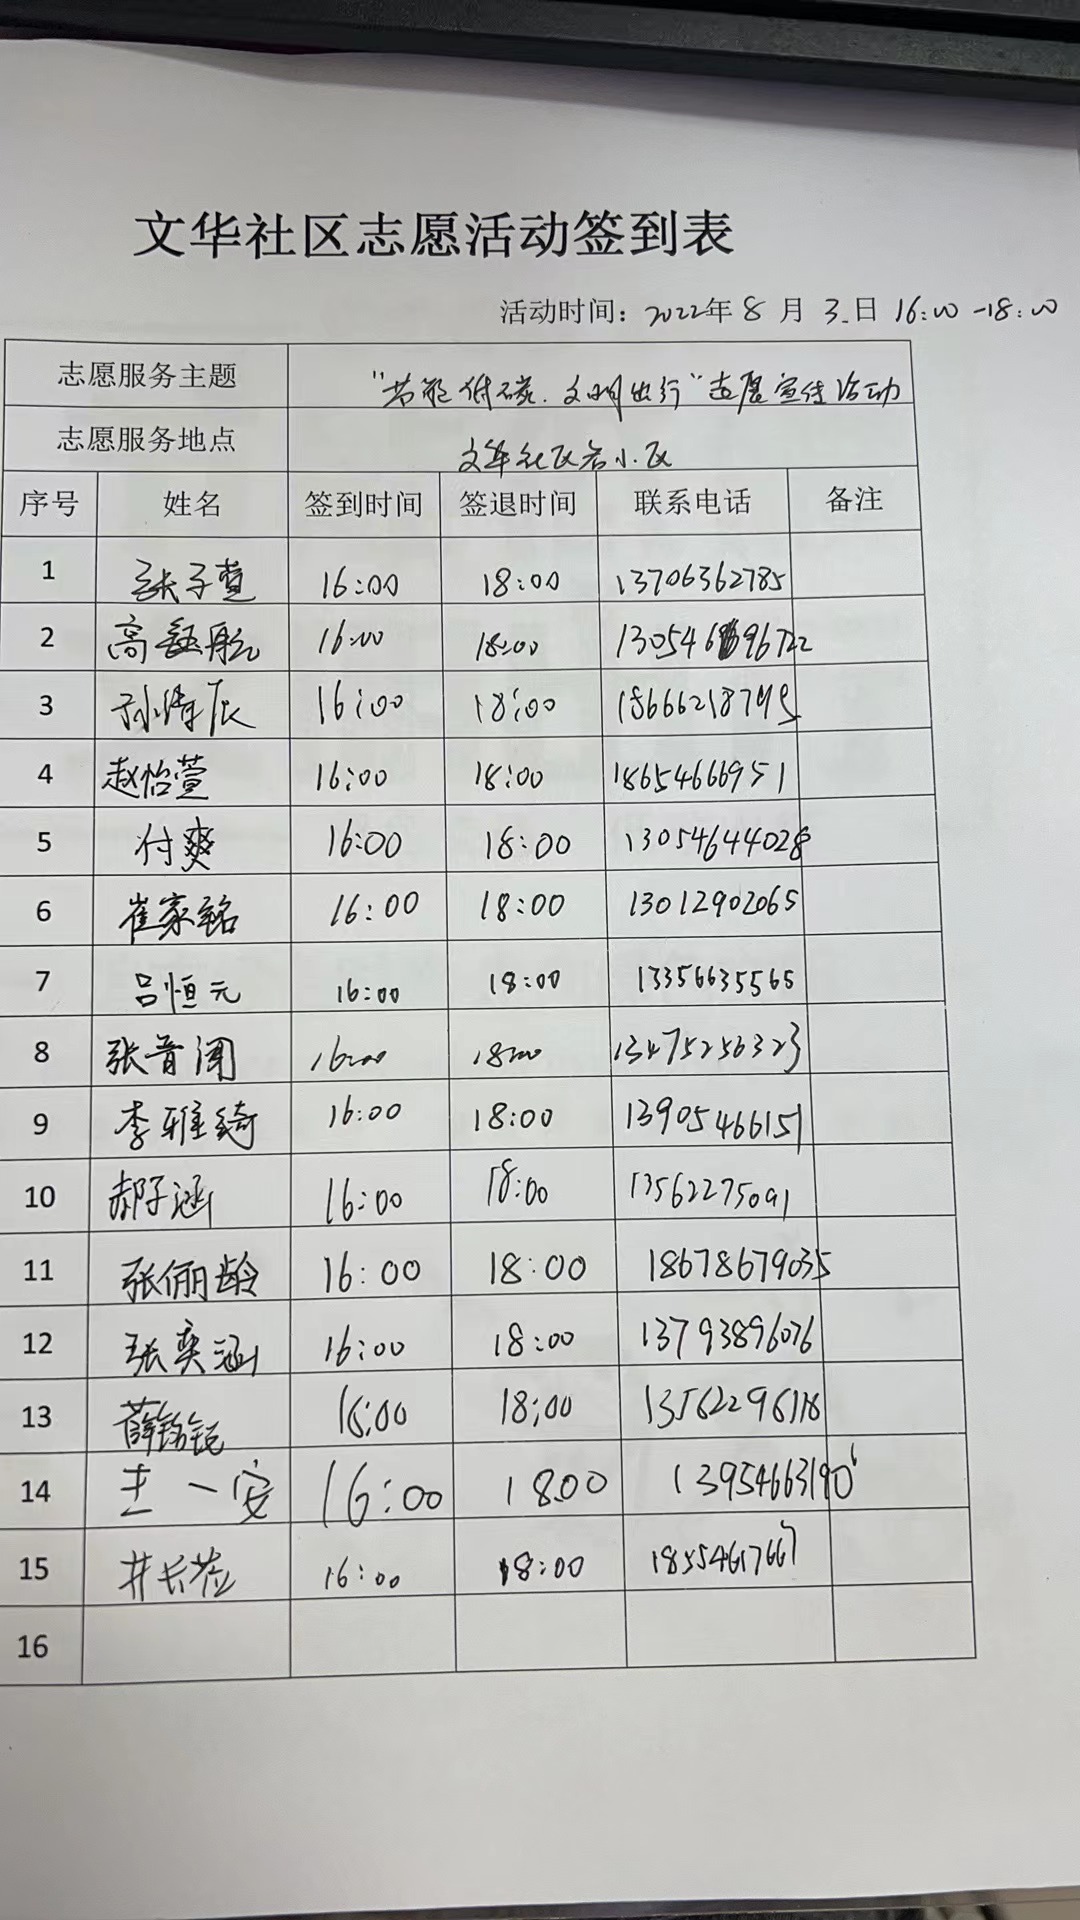 文华社区志愿活动签到表
活动时间：2022年 8 月 3 日 16:00-18:00
志愿服务主题 "节能低碳.文明出行"志愿宣传活动
志愿服务地点 文华社区各小区
序号 姓名 签到时间 签退时间 联系电话 备注
1 张子萱 16:00 18:00 13706362785
2 高钰航 16:00 18:00 13054696722
3 孙 辰 16:00 18:00
4 赵怡萱 16:00 18:00 18654666951
5 付爽 16:00 18:00 13054644028
6 崔家铭 16:00 18:00 13012902065
7 吕恒元 16:00 18:00 13356635565
8 张音闻 16:00 18:00 13475256323
9 李雅绮 16:00 18:00 13905466151
10 郝子涵 16:00 18:00 13562275091
11 张俪龄 16:00 18:00 18678679035
12 张奕涵 16:00 18:00 13793896076
13 薛铭锐 16:00 18:00 13562296118
14 王一安 16:00 18:00
15 井长 16:00 18:00 18554617667
16